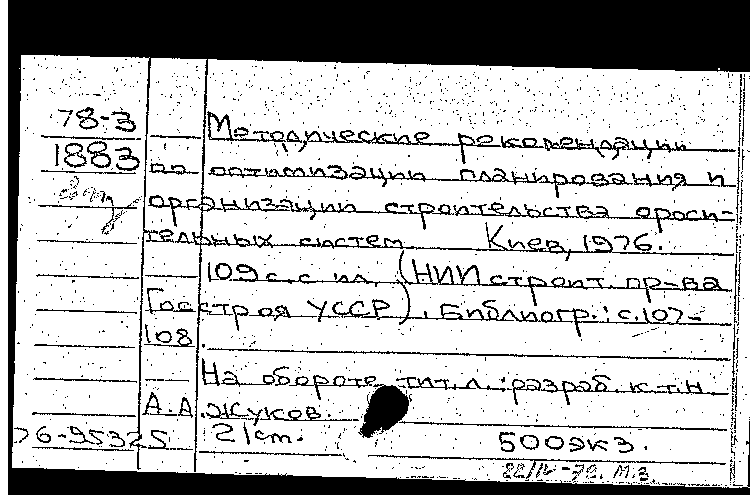 78-3
1883
Методические рекомендации
по оптимизации планирования и
организации строительства ороси-
тельных систем Киев, 1976.
109 с. с ил. (НИИ строит. пр-ва
Госстроя УССР). Библиогр.: с. 107-
108.
На обороте тит. л.: разраб. к.т.н.
А.А. Жуков.
76-95325 21cm. 5009кз.